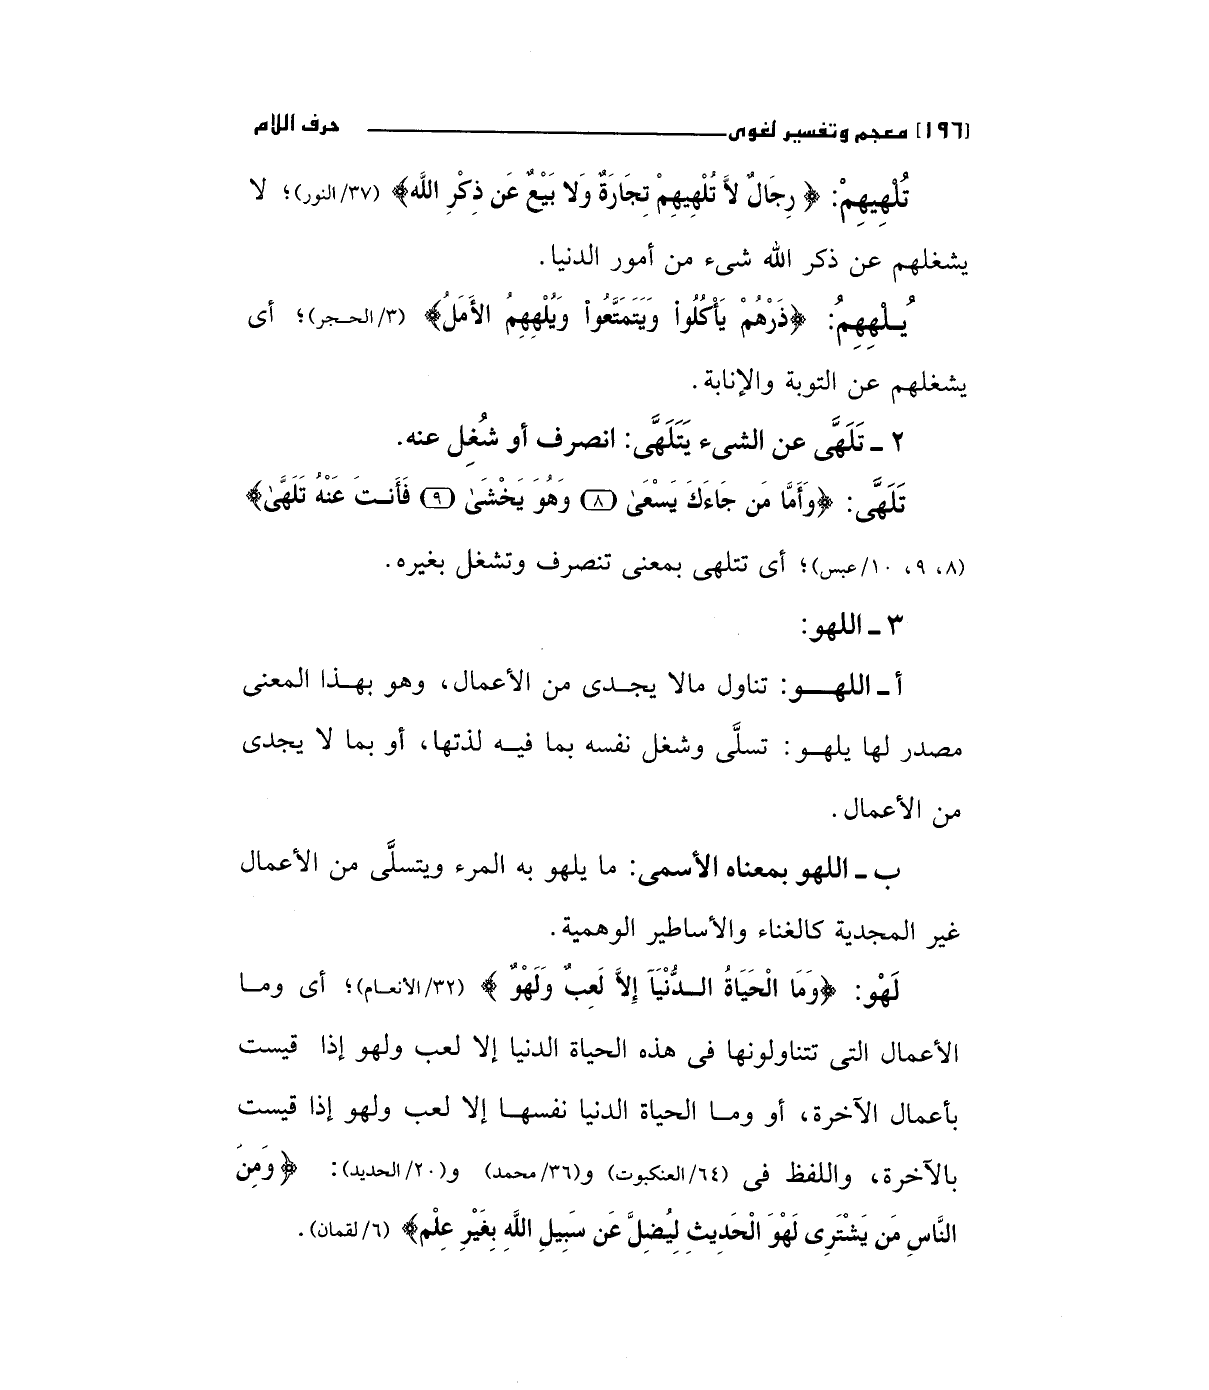 [١٩٦] معجم وتفسير لغوى ـــــــــــــــــ حرف اللام
تُلْهِيهِمْ: ﴿ رِجَالٌ لاَّ تُلْهِيهِمْ تِجَارَةٌ وَلا بَيْعٌ عَن ذِكْرِ اللَّه﴾ (٣٧/ النور)؛ لا
يشغلهم عن ذكر الله شىء من أمور الدنيا.
يُـلْهِهِمُ: ﴿ذَرْهُمْ يَأْكُلُوا وَيَتَمَتَّعُوا وَيُلْهِهِمُ الأَمَلُ﴾ (٣/ الحـجر)؛ أى
يشغلهم عن التوبة والإنابة.
٢ ـ تَلَهَّى عن الشىء يَتَلَهَّى: انصرف أو شُغِل عنه.
تَلَهَّى: ﴿وَأَمَّا مَن جَاءَكَ يَسْعَىٰ (٨) وَهُوَ يَخْشَىٰ (٩) فَأَنـتَ عَنْهُ تَلَهَّىٰ﴾
(٨، ٩، ١٠/ عبس)؛ أى تتلهى بمعنى تنصرف وتشغل بغيره.
٣ ـ اللهو:
أ ـ اللهـــو: تناول مالا يجـدى من الأعمال، وهو بهـذا المعنى
مصدر لها يلهـو: تسلَّى وشغل نفسه بما فيـه لذتها، أو بما لا يجدى
من الأعمال.
ب ـ اللهو بمعناه الأسمى: ما يلهو به المرء ويتسلَّى من الأعمال
غير المجدية كالغناء والأساطير الوهمية.
لَهْو: ﴿وَمَا الْحَيَاةُ الـدُّنْيَا إِلاَّ لَعِبٌ وَلَهْوٌ ﴾ (٣٢/ الأنعـام)؛ أى ومـا
الأعمال التى تتناولونها فى هذه الحياة الدنيا إلا لعب ولهو إذا قيست
بأعمال الآخرة، أو ومـا الحياة الدنيا نفسهـا إلا لعب ولهو إذا قيست
بالآخرة، واللفظ فى (٦٤/ العنكبوت) و(٣٦/ محمد) و(٢٠/ الحديد): ﴿وَمِنَ
النَّاسِ مَن يَشْتَرِى لَهْوَ الْحَدِيثِ لِيُضِلَّ عَن سَبِيلِ اللَّهِ بِغَيْرِ عِلْمٍ﴾ (٦/ لقمان).